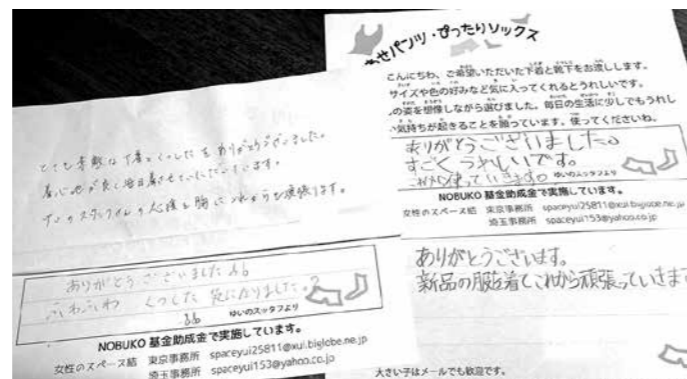 とても素敵な下着とくつしたをありがとうございました。
着心地が良く毎日着させていただいています。
の応援を胸にこれからも頑張ります。
ありがとうございました
ふわふわ くつした 気にかりました。
ゆいのスッタフより
NOBUKO 基金助成金で実施しています。
女性のスペース結 東京事務所 spaceyui25811@xui.biglobe.ne.jp
埼玉事務所 spaceyui153@yahoo.co.jp
せパンツ・ぴったりソックス
こんにちわ、ご希望いただいた下着と靴下をお渡しします。
サイズや色の好みなど気に入ってくれるとうれしいです。
の姿を想像しながら選びました。毎日の生活に少しでもうれし
気持ちが起きることを願っています。使ってくださいね。
ありがとうございました。
すごくうれしいです。
これから使っていきます。
ゆいのスッタフより
NOBUKO 基金助成金で実施しています。
女性のスペース結 東京事務所 spaceyui25811@xui.biglobe.ne.jp
埼玉事務所 spaceyui153@yahoo.co.jp
ありがとうございます。
新品の服を着てこれから頑張っていきます
大さい子はメールでも歓迎です。